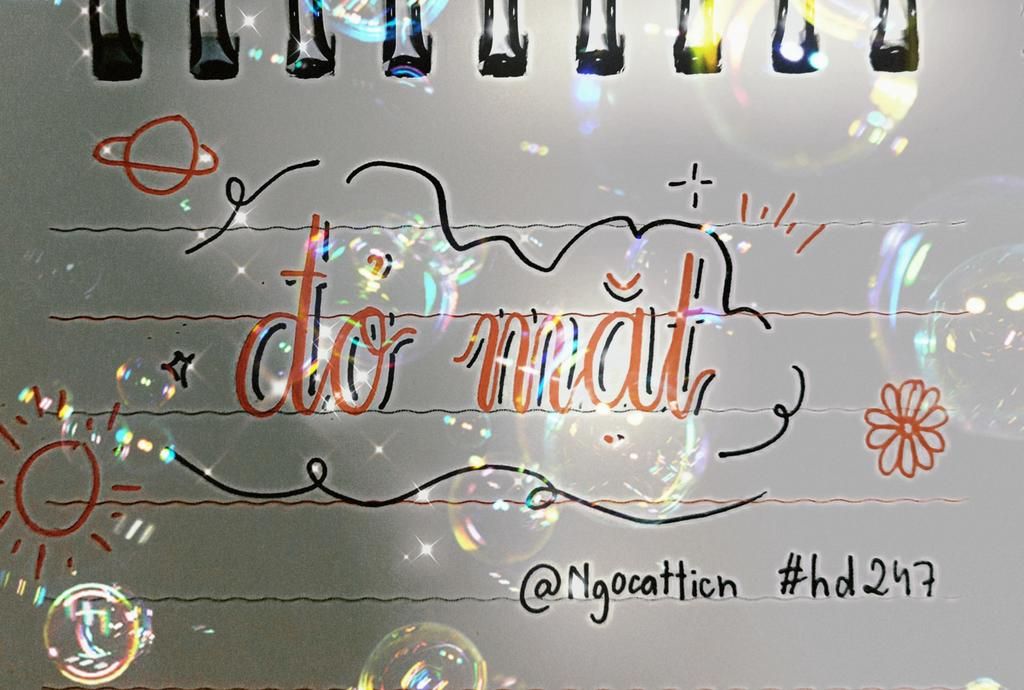 đỏ mặt
@Ngocatticn #hd247